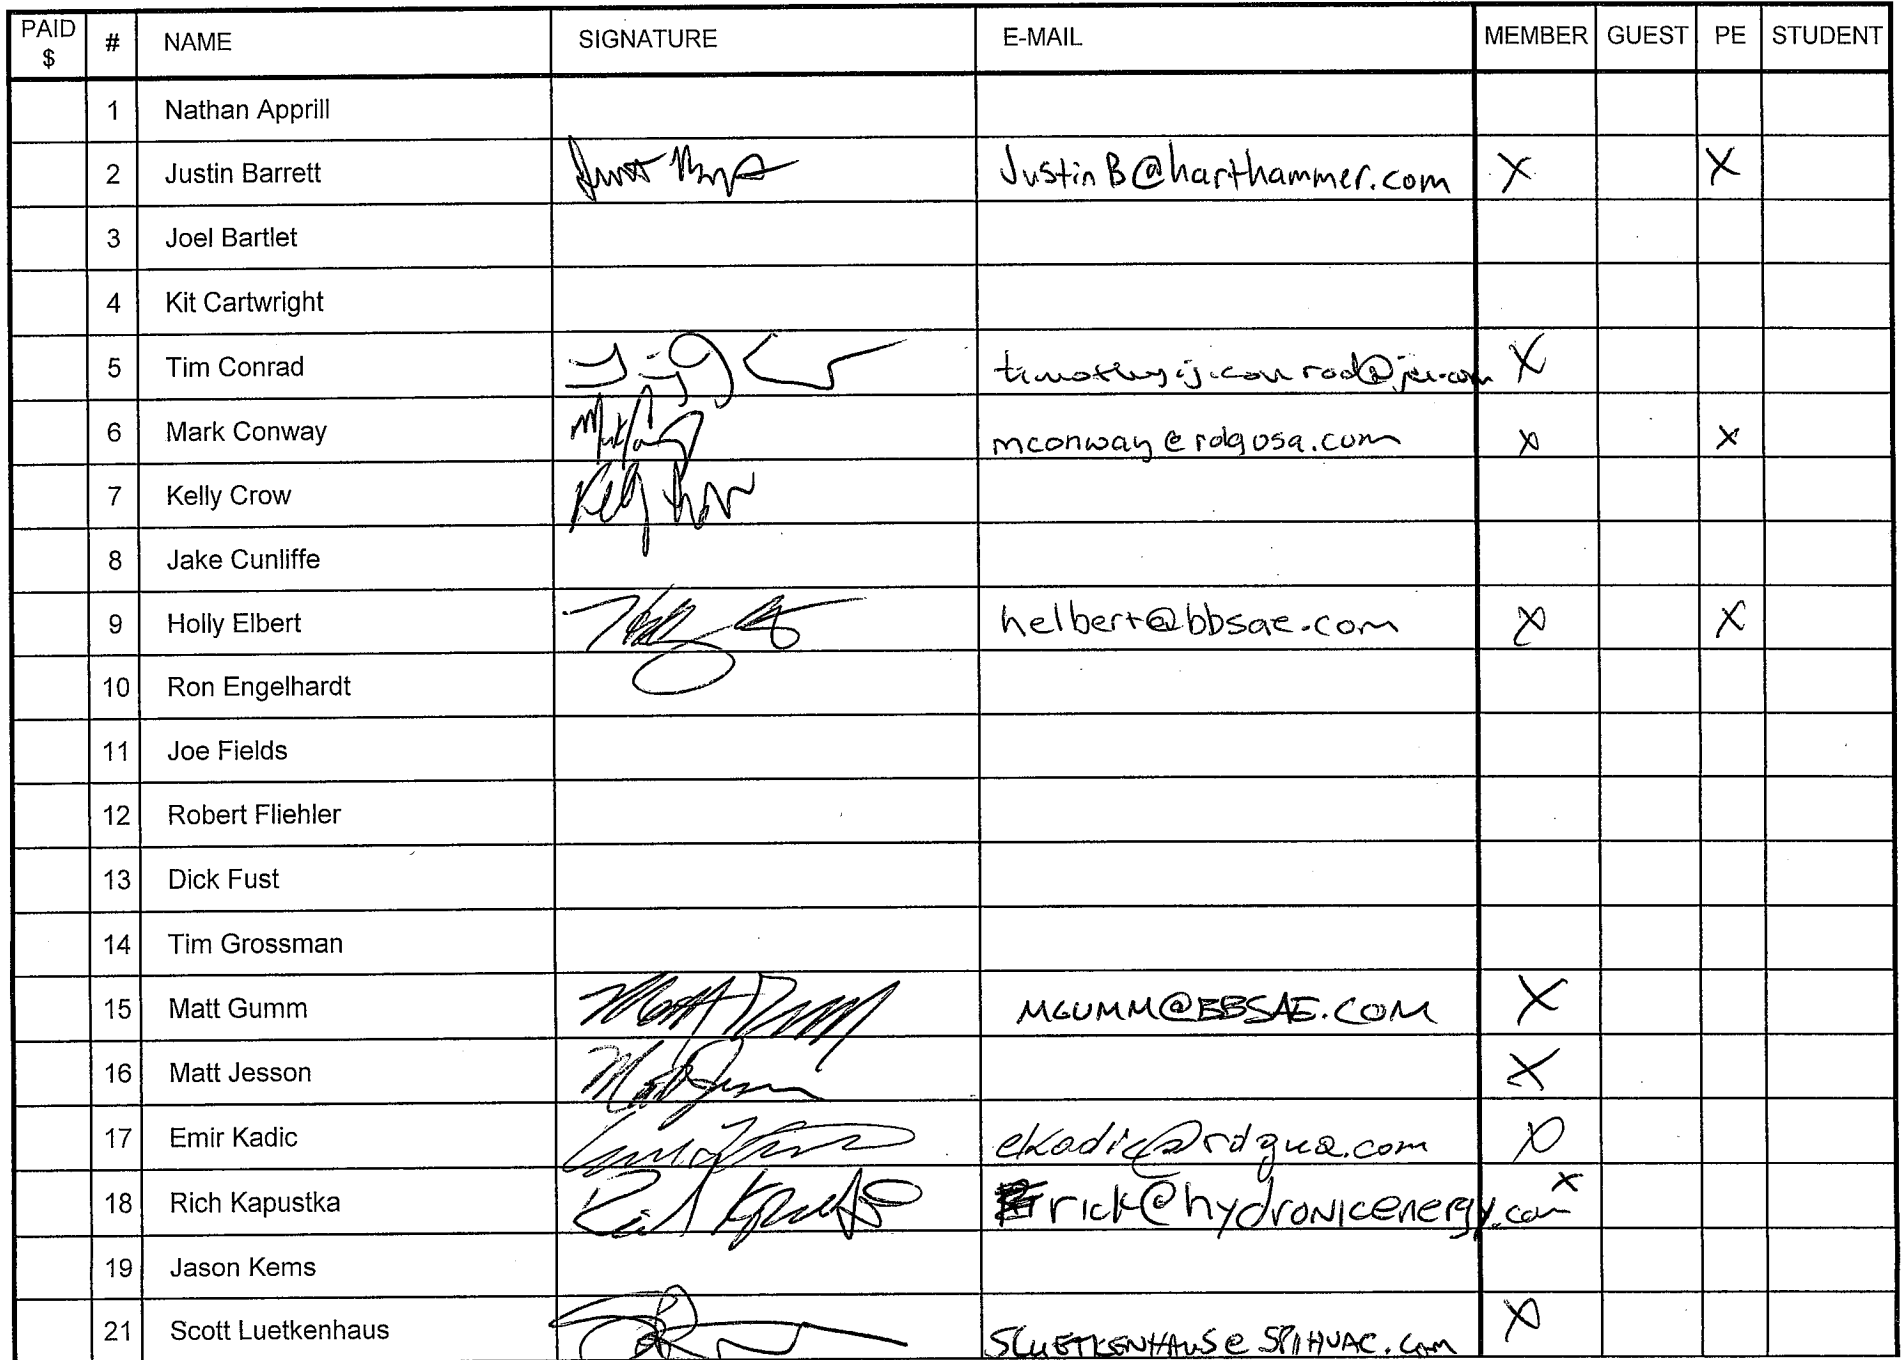 PAID $ # NAME SIGNATURE E-MAIL MEMBER GUEST PE STUDENT
1 Nathan Apprill
2 Justin Barrett JustinB@harthammer.com X X
3 Joel Bartlet
4 Kit Cartwright
5 Tim Conrad timothy.j.conrad@jci.com X
6 Mark Conway mconway@rdgusa.com X X
7 Kelly Crow Kelly Crow
8 Jake Cunliffe
9 Holly Elbert helbert@bbsae.com X X
10 Ron Engelhardt
11 Joe Fields
12 Robert Fliehler
13 Dick Fust
14 Tim Grossman
15 Matt Gumm Matt Gumm MGUMM@BBSAE.COM X
16 Matt Jesson Matt Jesson X
17 Emir Kadic ekadic@rdgua.com X
18 Rich Kapustka rick@hydronicenergy.com X
19 Jason Kems
21 Scott Luetkenhaus SLUETKENHAUS@SPIHVAC.com X